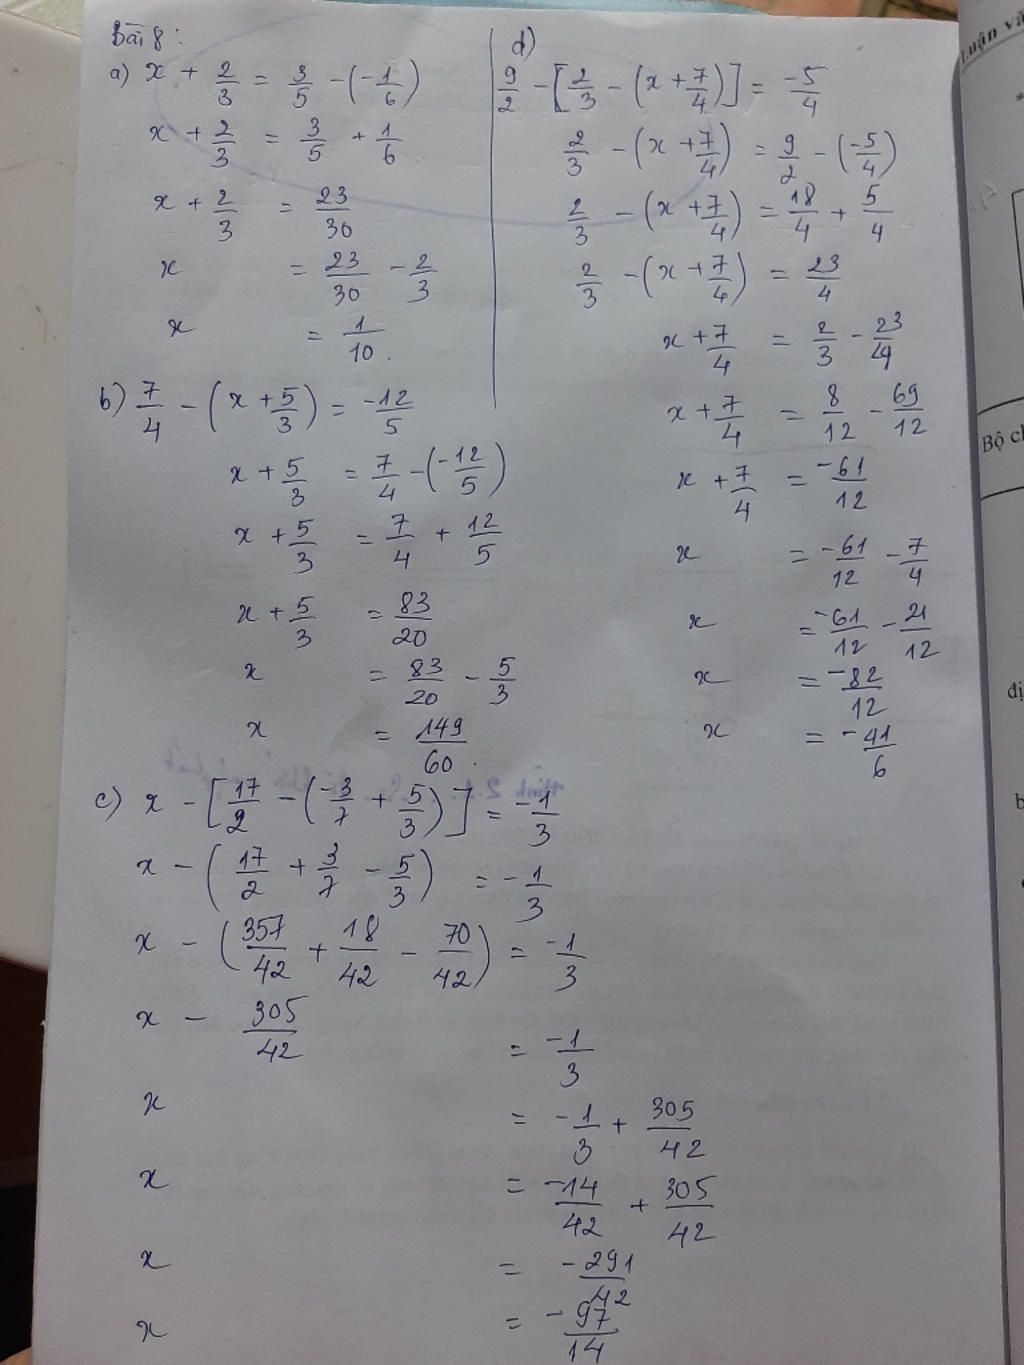 Bài 8:
a) x + 2/3 = 3/5 - (-1/6)
x + 2/3 = 3/5 + 1/6
x + 2/3 = 23/30
x = 23/30 - 2/3
x = 1/10.
b) 7/4 - (x + 5/3) = -12/5
x + 5/3 = 7/4 - (-12/5)
x + 5/3 = 7/4 + 12/5
x + 5/3 = 83/20
x = 83/20 - 5/3
x = 149/60.
c) x - [17/2 - (-3/7 + 5/3)] = -1/3
x - (17/2 + 3/7 - 5/3) = -1/3
x - (357/42 + 18/42 - 70/42) = -1/3
x - 305/42 = -1/3
x = -1/3 + 305/42
x = -14/42 + 305/42
x = -291/42
x = -97/14
d)
9/2 - [2/3 - (x + 7/4)] = -5/4
2/3 - (x + 7/4) = 9/2 - (-5/4)
2/3 - (x + 7/4) = 18/4 + 5/4
2/3 - (x + 7/4) = 23/4
x + 7/4 = 2/3 - 23/4
x + 7/4 = 8/12 - 69/12
x + 7/4 = -61/12
x = -61/12 - 7/4
x = -61/12 - 21/12
x = -82/12
x = -41/6
Luận vă
Bộ ch